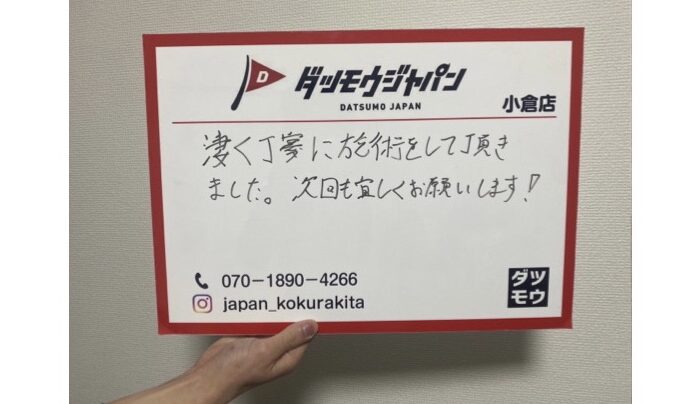 D
ダツモウジャパン
DATSUMO JAPAN
小倉店
凄く丁寧に施術をして頂き
ました。次回も宜しくお願いします!
070-1890-4266
japan_kokurakita
ダツ
モウ